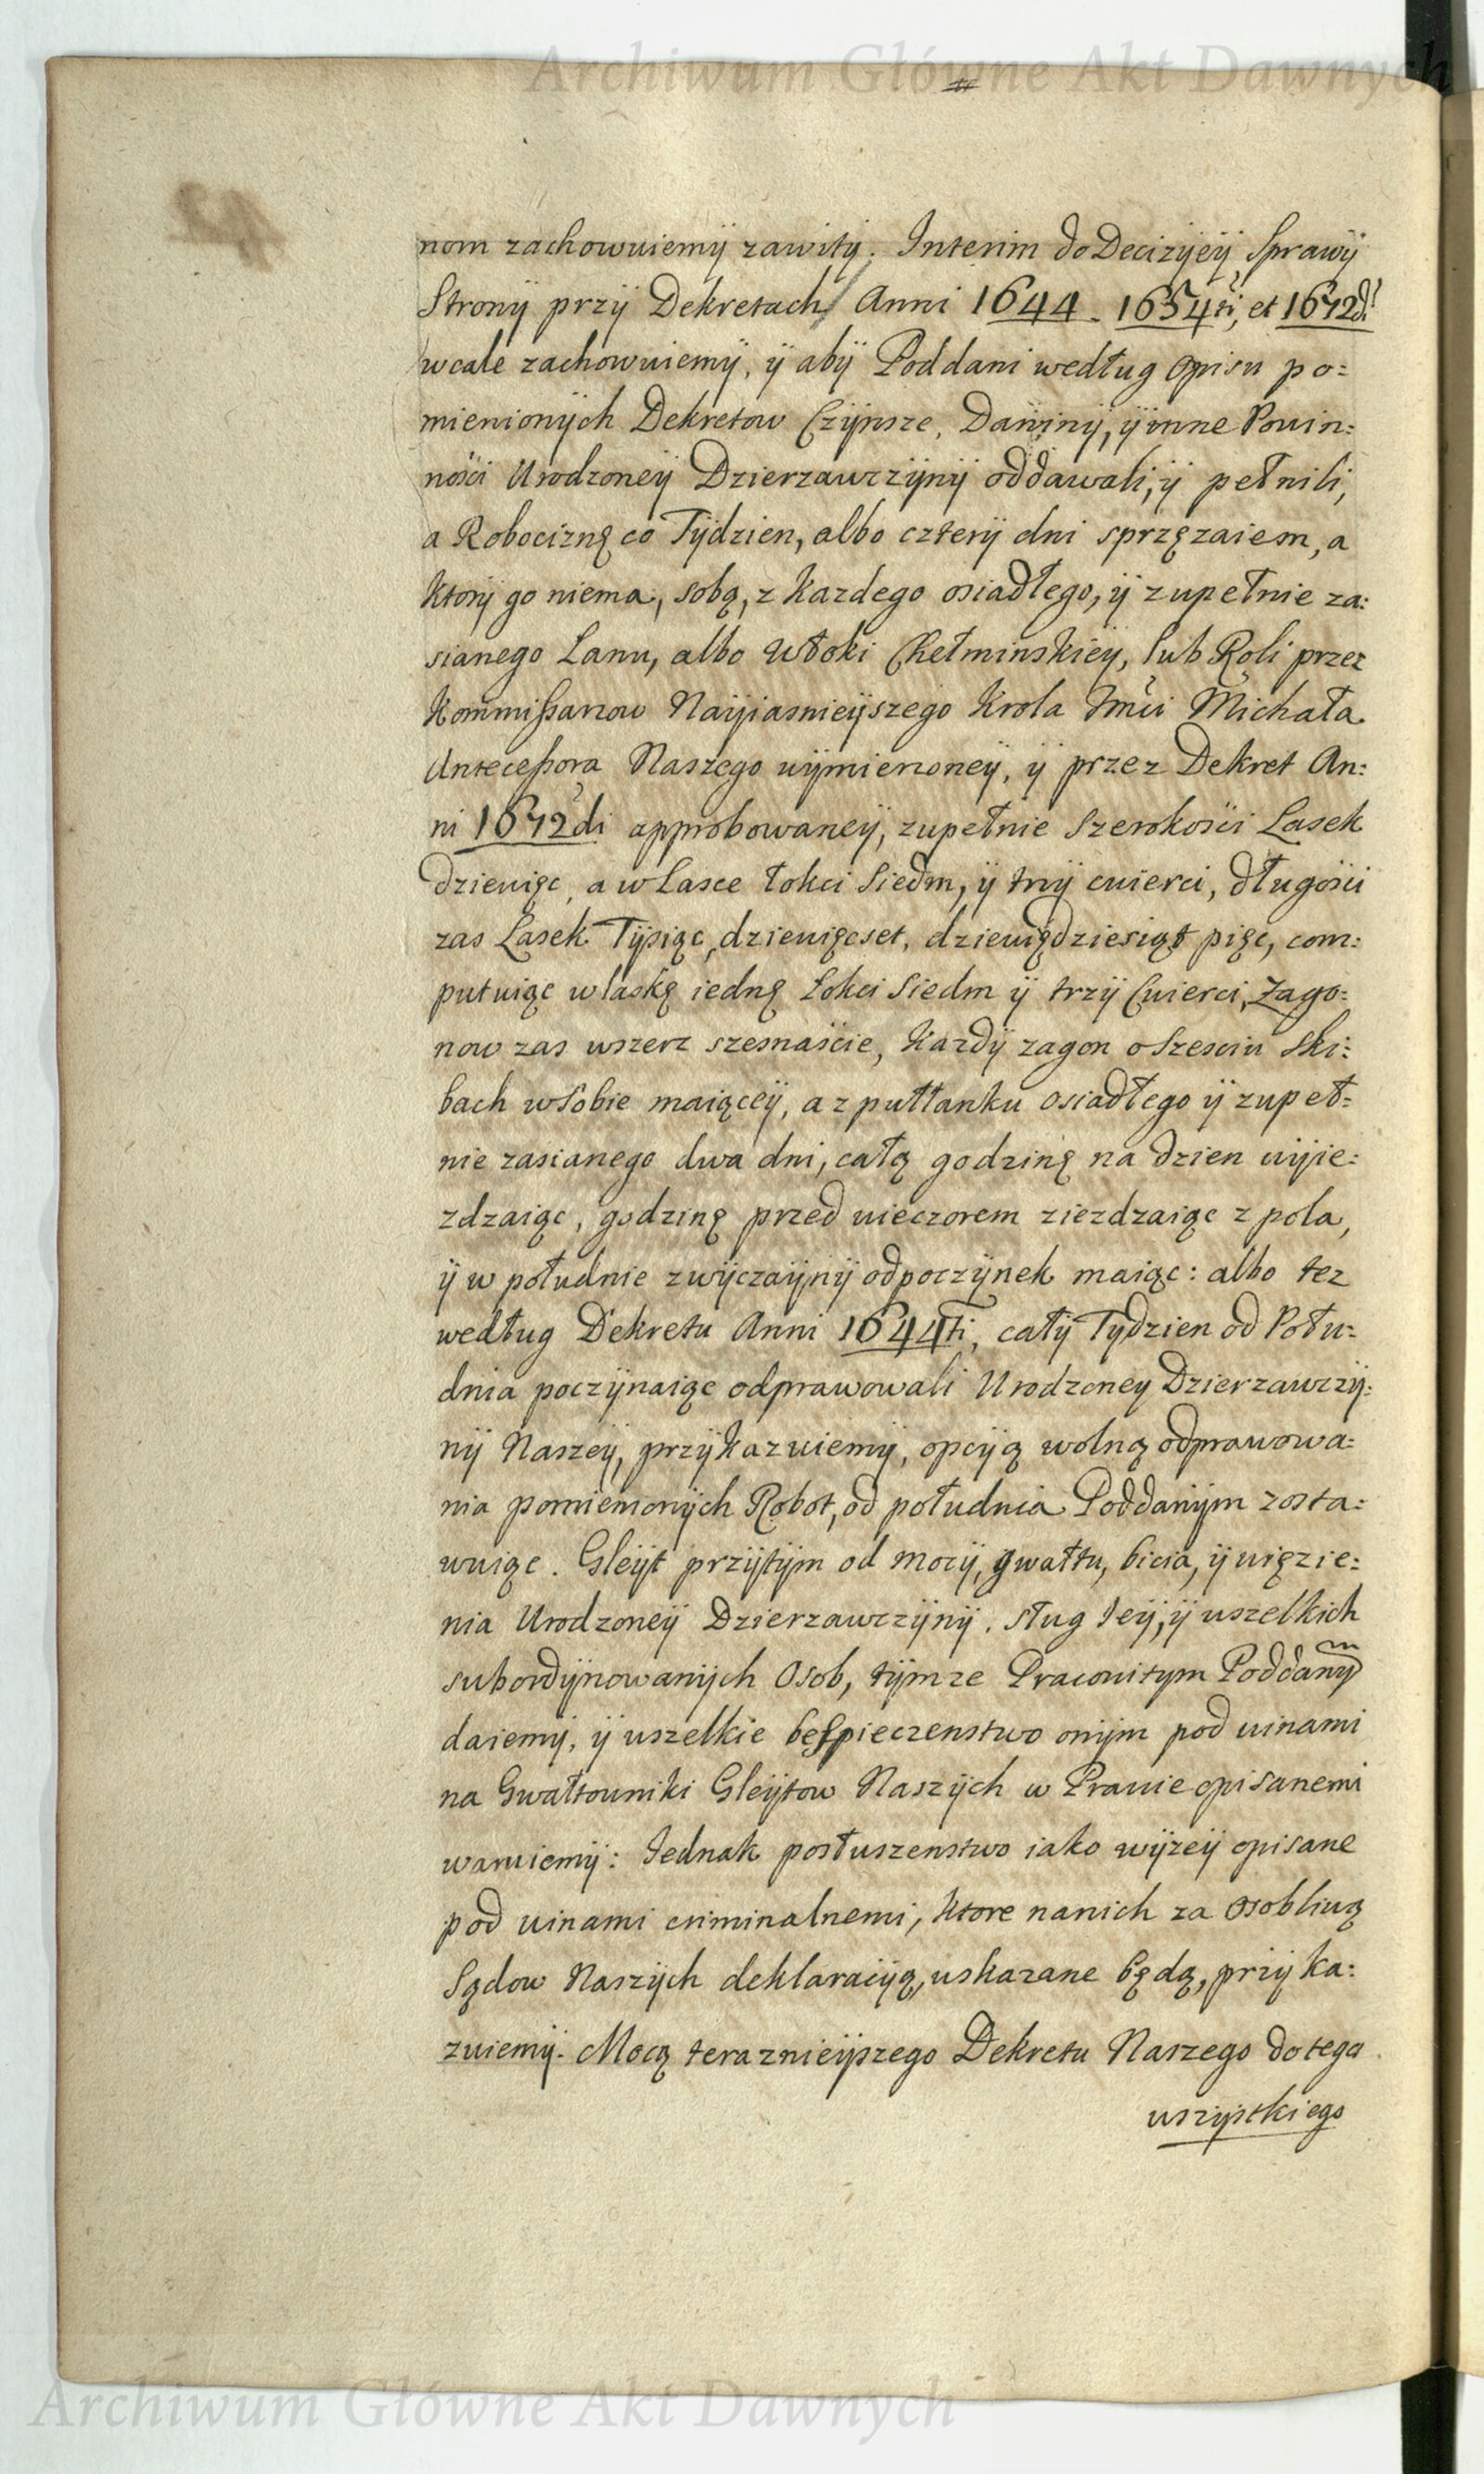 Archiwum Główne Akt Dawnych
nom zachowuiemÿ zawitÿ. Interim do Decizÿeÿ Sprawÿ
Stronÿ przÿ Dekretach/ Anni 1644. 1654ti, et 1672di
wcale zachowuiemÿ, ÿ abÿ Poddani według opisu po=
mienionÿch Dekretow Czÿnsze, Daninÿ, ÿ inne Powin=
ności Urodzoneÿ Dzierzawczÿnÿ oddawali, ÿ pełnili,
a Robociznę co Tÿdzien, albo czterÿ dni sprzęzaiem, a
ktorÿ go niema, sobą, z kazdego osiadłego, ÿ zupełnie za=
sianego Lanu, albo włoki Chełminskieÿ, lub Roli przez
Kommißarzow Naÿiasnieÿszego Krola Jmci Michała
Anteceßora Naszego wÿmierzoneÿ, ÿ przez Dekret An=
ni 1672di approbowaneÿ, zupełnie Szerokości Lasek
dziewięc, a w Lasce łokci Siedm, ÿ trzÿ cwierci, długości
zas Lasek Tÿsiąc, dziewięcset, dziewiędziesiąt pięc, com=
putuiąc w laskę iednę Łokci Siedm ÿ trzÿ Cwierci, Zago=
now zas wszerz szesnaście, kazdÿ zagon o Szesciu Ski=
bach w Sobie maiąceÿ, a z pułłanku osiadłego ÿ zupeł=
nie zasianego dwa dni, całą godzinę na dzien wÿie=
zdzaiąc, godzinę przed wieczorem ziezdzaiąc z pola,
ÿ w południe zwÿczaÿnÿ odpoczÿnek maiąc: albo tez
według Dekretu Anni 1644ti, całÿ Tydzien od Połu=
dnia poczÿnaiąc odprawowali Urodzoney Dzierzawczÿ=
nÿ Naszeÿ, przÿkazuiemÿ, opcÿą wolną odprawowa=
nia pomienionÿch Robot, od południa Poddanÿm zosta=
wuiąc. Gleÿt przÿtÿm od mocÿ, gwałtu, bicia, ÿ więzie=
nia Urodzoneÿ Dzierzawczÿnÿ, sług Jeÿ, ÿ wszelkich
subordÿnowanÿch Osob, tÿmze Pracowitym Poddanym
daiemÿ, ÿ wszelkie bespieczenstwo onÿm pod winami
na Gwałtowniki Gleÿtow Naszÿch w Prawie opisanemi
waruiemÿ: Jednak posłuszenstwo iako wÿzeÿ opisane
pod winami criminalnemi, ktore na nich za osobliwą
Sądow Naszÿch deklaracÿą, wskazane będą, przÿka=
zuiemÿ. Mocą teraznieÿszego Dekretu Naszego do tego
wszÿstkiego
Archiwum Główne Akt Dawnych